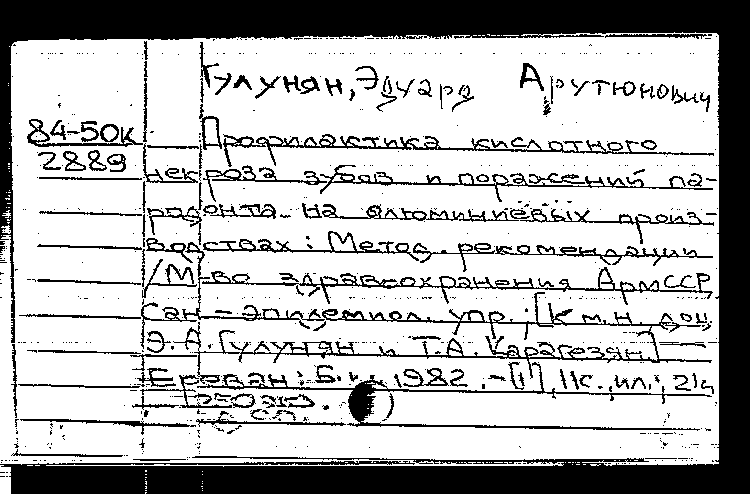 Гулунян, Эдуард Арутюнович
84-50к
2889
Профилактика кислотного
некроза зубов и поражений па-
радонта на алюминиевых произ-
водствах: Метод. рекомендации
/М-во здравоохранения АрмССР,
Сан-эпидемиол. упр.; [К.м.н. доц.
Э.А. Гулунян и Т.А. Карагезян] —
Ереван: Б.и., 1982. - [1], 11с., ил.; 21